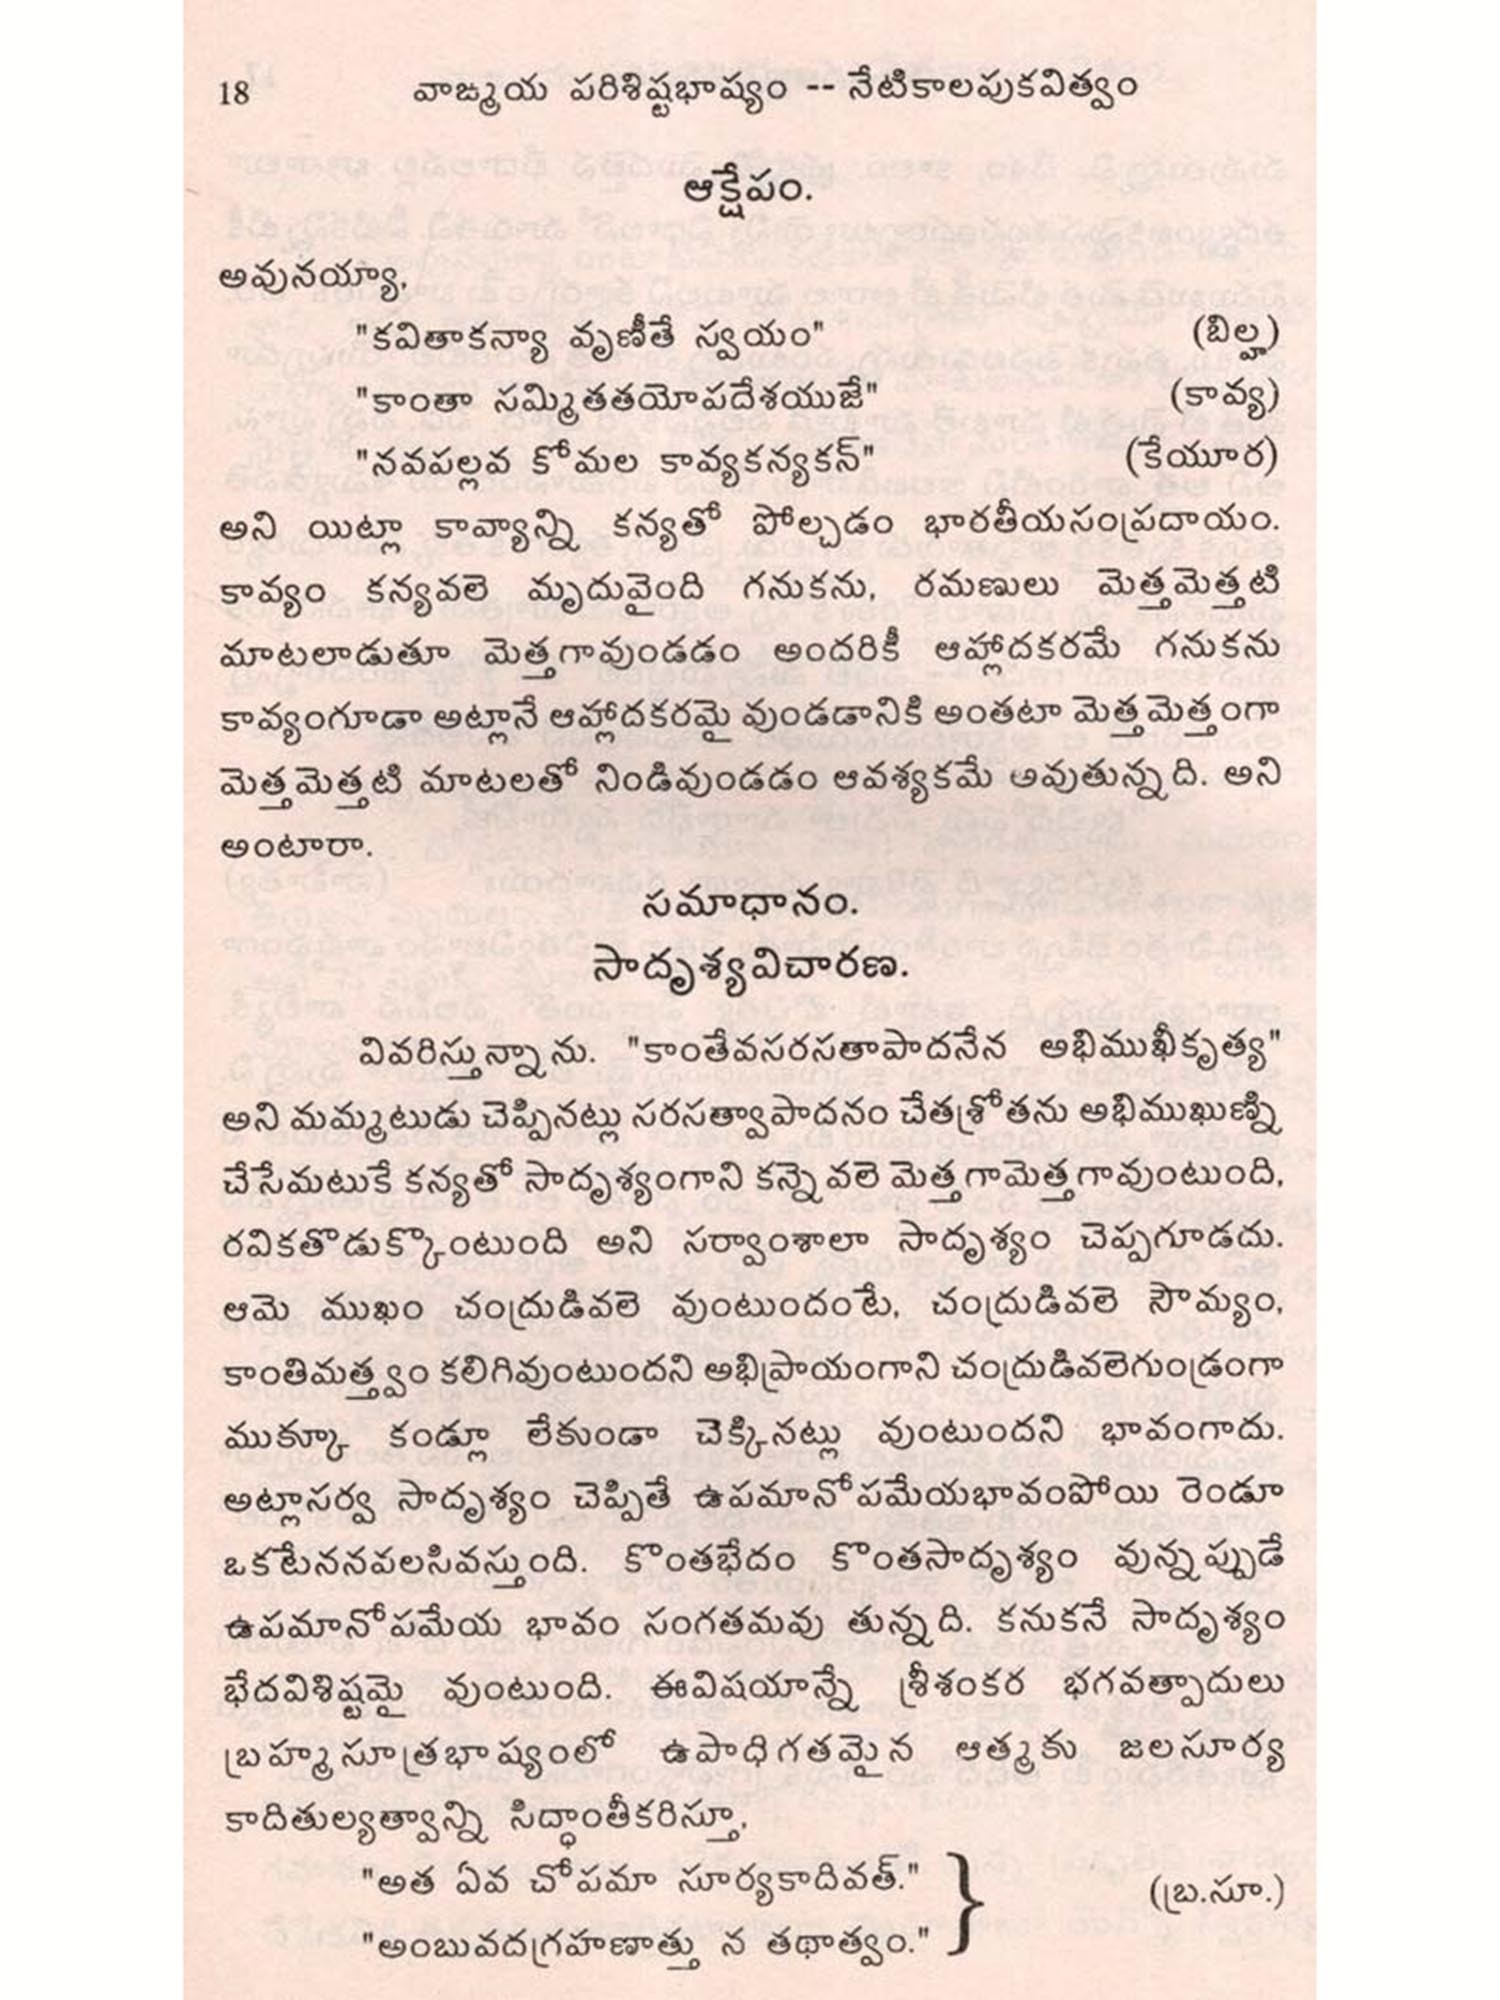 18 వాఙ్మయ పరిశిష్టభాష్యం -- నేటికాలపుకవిత్వం
ఆక్షేపం.
అవునయ్యా,
"కవితాకన్యా వృణీతే స్వయం" (బిల్హ)
"కాంతా సమ్మితతయోపదేశయుజే" (కావ్య)
"నవపల్లవ కోమల కావ్యకన్యకన్" (కేయూర)
అని యిట్లా కావ్యాన్ని కన్యతో పోల్చడం భారతీయసంప్రదాయం.
కావ్యం కన్యవలె మృదువైంది గనుకను, రమణులు మెత్తమెత్తటి
మాటలాడుతూ మెత్తగావుండడం అందరికీ ఆహ్లాదకరమే గనుకను
కావ్యంగూడా అట్లానే ఆహ్లాదకరమై వుండడానికి అంతటా మెత్తమెత్తంగా
మెత్తమెత్తటి మాటలతో నిండివుండడం ఆవశ్యకమే అవుతున్నది. అని
అంటారా.
సమాధానం.
సాదృశ్యవిచారణ.
వివరిస్తున్నాను. "కాంతేవసరసతాపాదనేన అభిముఖీకృత్య"
అని మమ్మటుడు చెప్పినట్లు సరసత్వాపాదనం చేతశ్రోతను అభిముఖుణ్ని
చేసేమటుకే కన్యతో సాదృశ్యంగాని కన్నెవలె మెత్తగామెత్తగావుంటుంది,
రవికతొడుక్కొంటుంది అని సర్వాంశాలా సాదృశ్యం చెప్పగూడదు.
ఆమె ముఖం చంద్రుడివలె వుంటుందంటే, చంద్రుడివలె సౌమ్యం,
కాంతిమత్త్వం కలిగివుంటుందని అభిప్రాయంగాని చంద్రుడివలెగుండ్రంగా
ముక్కూ కండ్లూ లేకుండా చెక్కినట్లు వుంటుందని భావంగాదు.
అట్లాసర్వ సాదృశ్యం చెప్పితే ఉపమానోపమేయభావంపోయి రెండూ
ఒకటేననవలసివస్తుంది. కొంతభేదం కొంతసాదృశ్యం వున్నప్పుడే
ఉపమానోపమేయ భావం సంగతమవు తున్నది. కనుకనే సాదృశ్యం
భేదవిశిష్టమై వుంటుంది. ఈవిషయాన్నే శ్రీశంకర భగవత్పాదులు
బ్రహ్మసూత్రభాష్యంలో ఉపాధిగతమైన ఆత్మకు జలసూర్య
కాదితుల్యత్వాన్ని సిద్ధాంతీకరిస్తూ,
"అత ఏవ చోపమా సూర్యకాదివత్." (బ్ర.సూ.)
"అంబువదగ్రహణాత్తు న తథాత్వం."